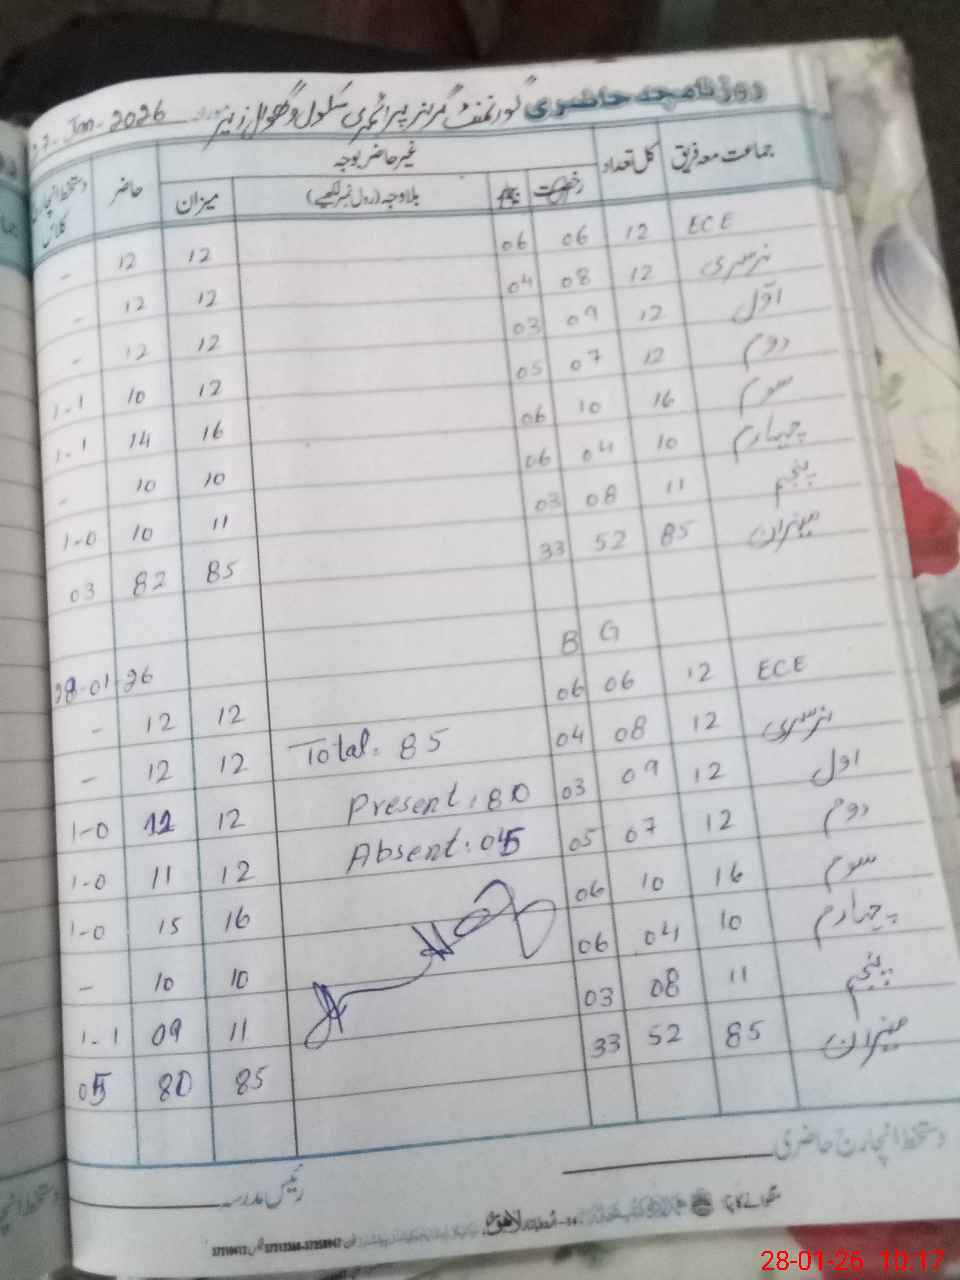 روزنامچہ حاضری گورنمنٹ گرلز پرائمری سکول وگھوال زیر Jan-2026
جماعت معہ فریق کل تعداد غیر حاضر بوجہ حاضر دستخط انچارج کلاس
رخصت بلاوجہ (رول نمبر لکھیے) میزان
ECE 12 06 06 12 12 -
نرسری 12 08 04 12 12 -
اوّل 12 09 03 12 12 -
دوم 12 07 05 12 10 1-1
سوم 16 10 06 16 14 1-1
چہارم 10 04 06 10 10 -
پنجم 11 08 03 11 10 1-0
میزان 85 52 33 85 82 03
G B
28-01-26
ECE 12 06 06 12 12 -
نرسری 12 08 04 Total: 85 12 12 -
اول 12 09 03 Present: 80 12 11 1-0
دوم 12 07 05 Absent: 05 12 11 1-0
سوم 16 10 06 16 15 1-0
چہارم 10 04 06 10 10 -
پنجم 11 08 03 11 09 1-1
میزان 85 52 33 85 80 05
دستخط انچارج حاضری
رئیس مدرسہ
لاہور
28-01-26 10:17